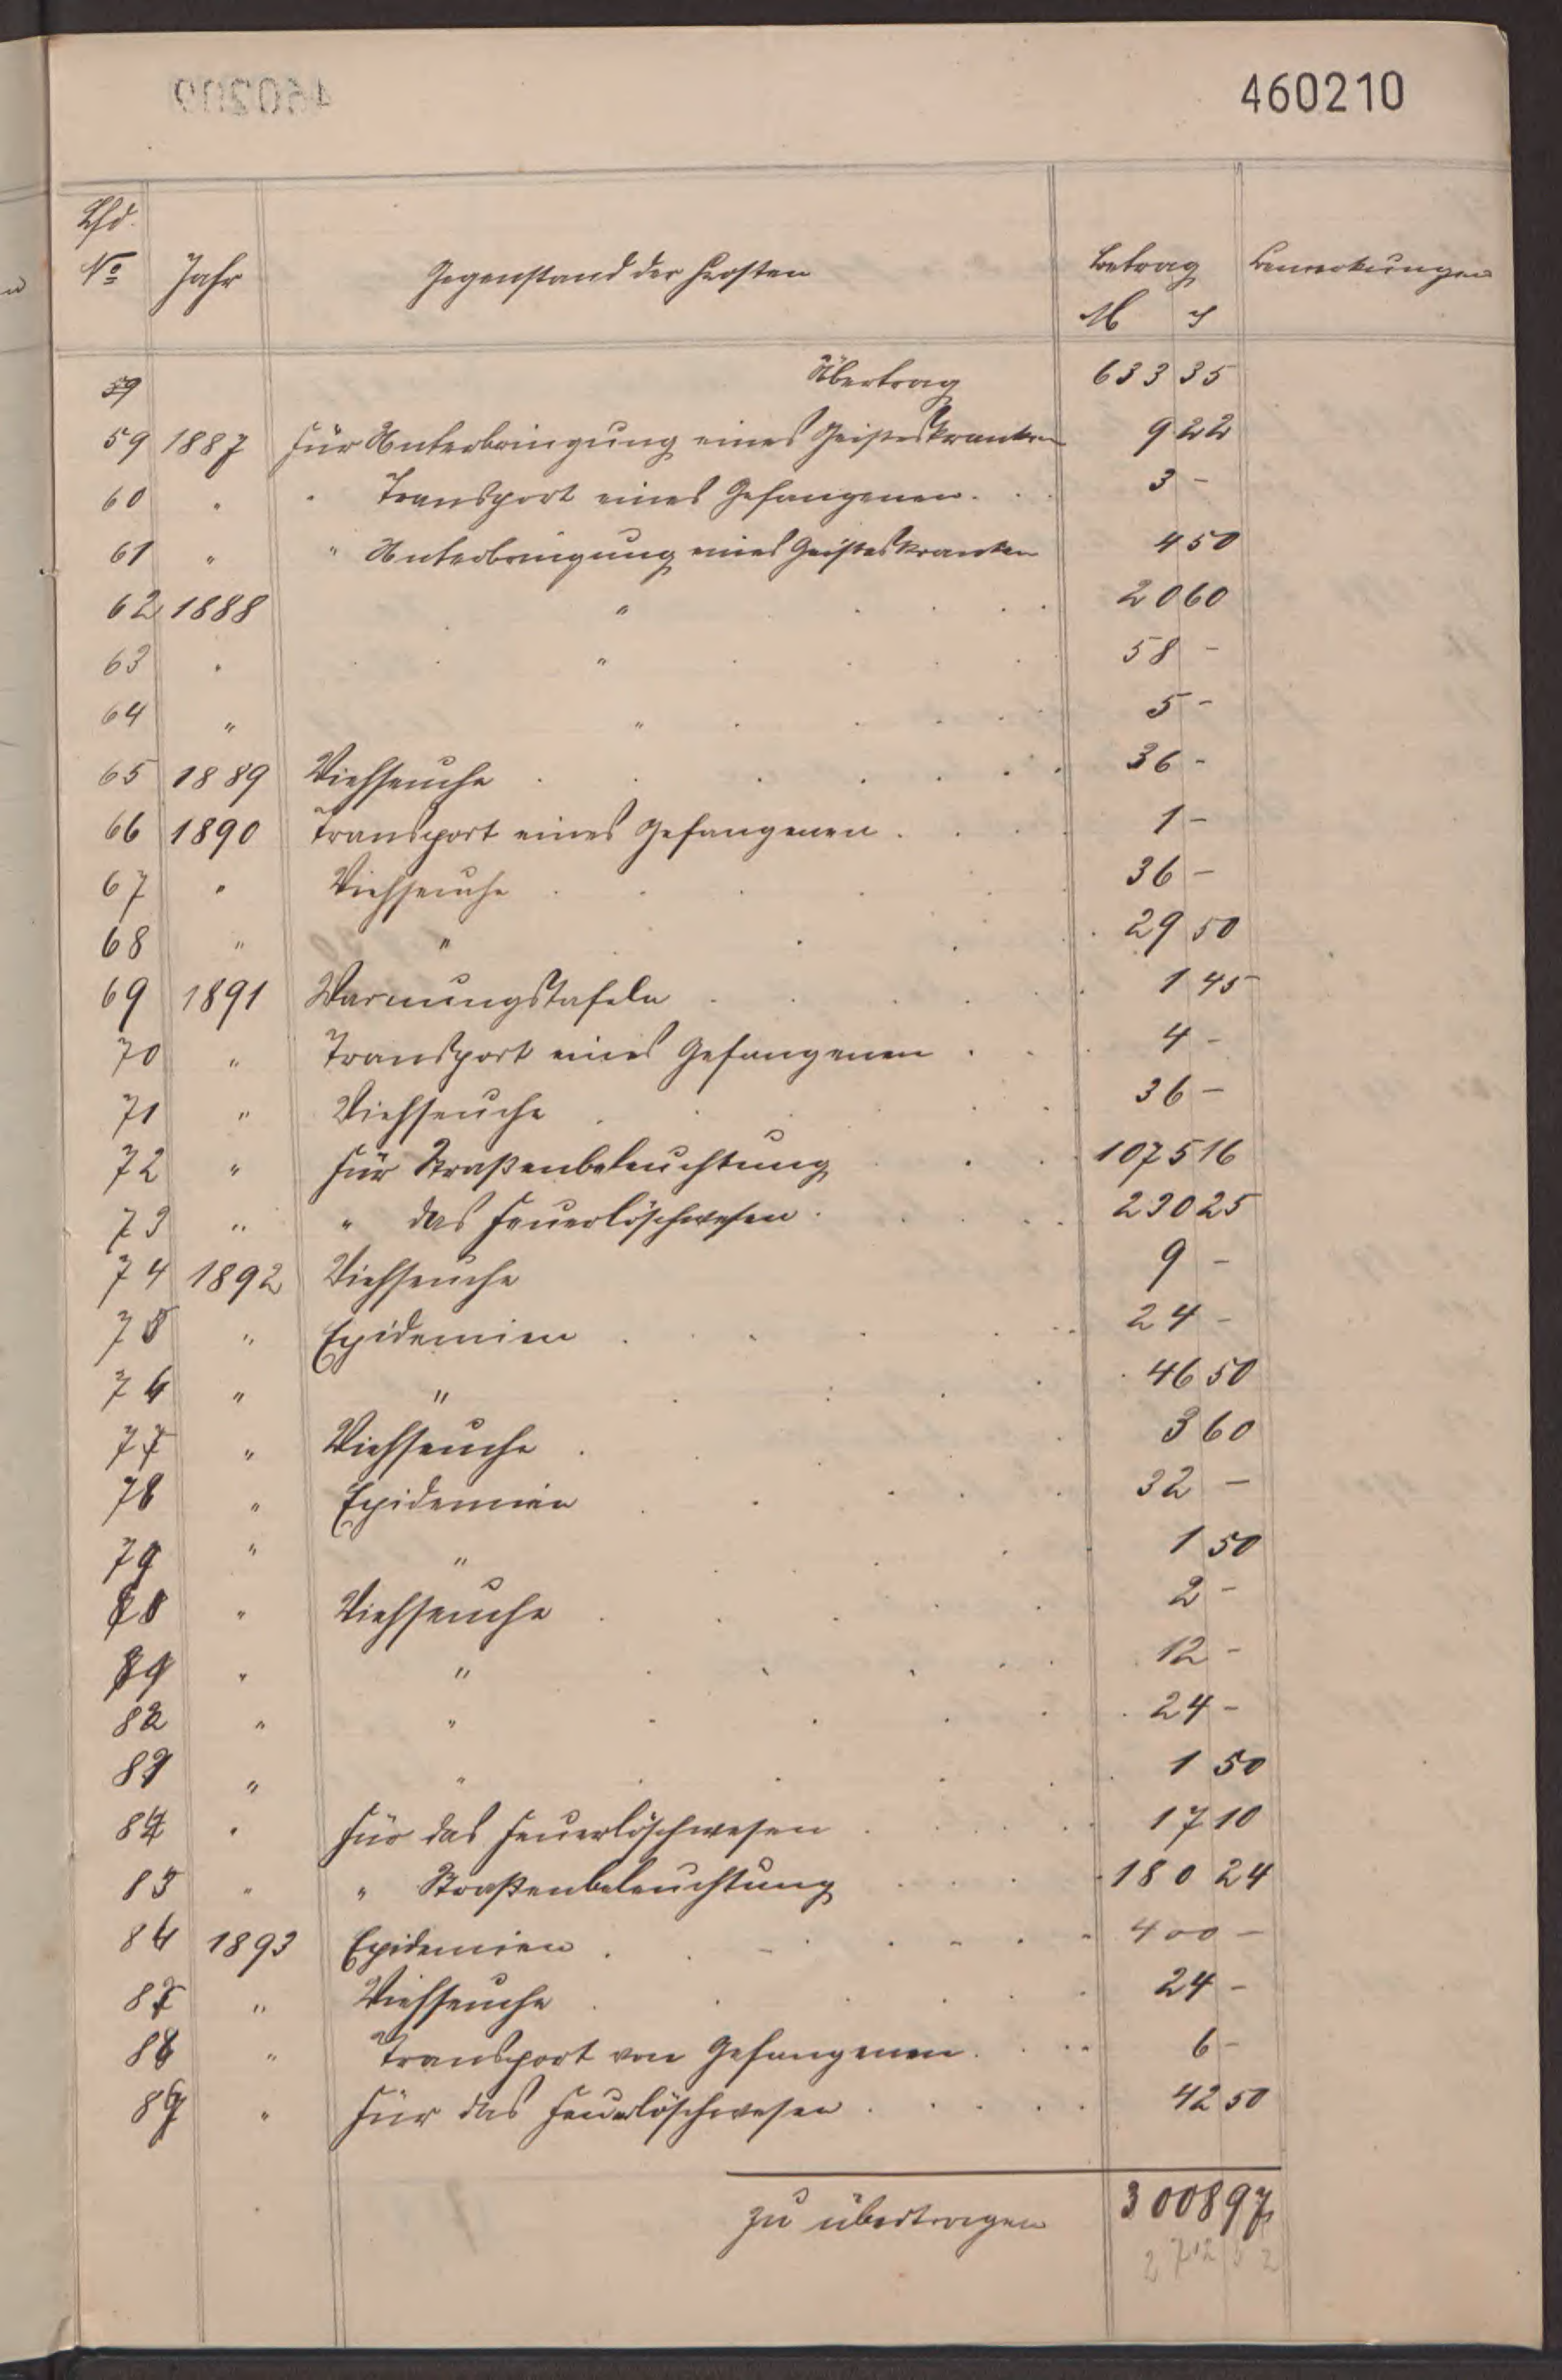 460210
Lfd.
No Jahr Gegenstand der Kosten Betrag Bemerkungen
M ₰
59 Übertrag 633 35
59 1887 Für Unterbringung eines Geisteskranken 9 22
60 " " Transport eines Gefangenen 3 -
61 " " Unterbringung eines Geisteskranken 4 50
62 1888 " 20 60
63 " " 58 -
64 " " 5 -
65 1889 Viehseuche 36 -
66 1890 Transport eines Gefangenen 1 -
67 " Viehseuche 36 -
68 " " 29 50
69 1891 Warnungstafeln 1 45
70 " Transport eines Gefangenen 4 -
71 " Viehseuche 36 -
72 " Für Straßenbeleuchtung 1075 16
73 " " das Feuerlöschwesen 230 25
74 1892 Viehseuche 9 -
75 " Epidemien 24 -
76 " " 46 50
77 " Viehseuche 3 60
78 " Epidemien 32 -
79 " " 1 50
80 " Viehseuche 2 -
81 " " 12 -
82 " " 24 -
83 " " 1 50
84 " Für das Feuerlöschwesen 17 10
85 " " Straßenbeleuchtung 180 24
86 1893 Epidemien 400 -
87 " Viehseuche 24 -
88 " Transport von Gefangenen 6 -
89 " Für das Feuerlöschwesen 42 50
zu übertragen 3008 97